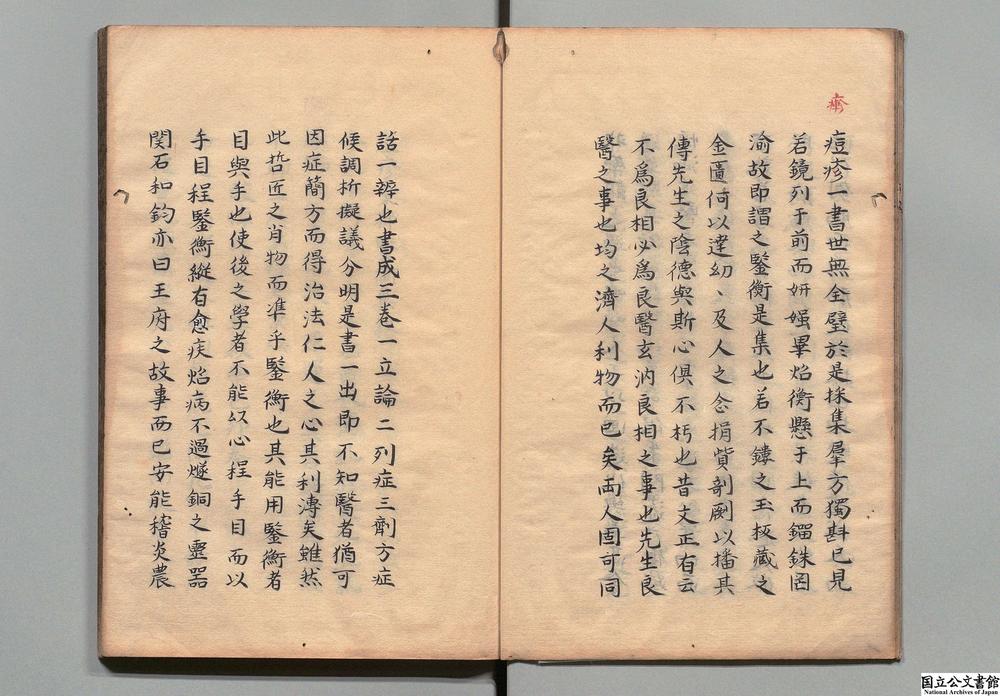 痘疹一書世無全璧於是採集羣方獨斟己見
若鏡列于前而妍媸畢焰衡懸于上而錙銖罔
渝故即謂之鑒衡是集也若不鏤之玉板藏之
金匱何以達幼〻及人之念捐貲剞劂以播其
傳先生之陰德與斯心俱不朽也昔文正有云
不爲良相必爲良醫玄汭良相之事也先生良
醫之事也均之濟人利物而已矣兩人固可同
話一辨也書成三卷一立論二列症三劑方症
候調析擬議分明是書一出即不知醫者猶可
因症簡方而得治法仁人之心其利溥矣雖然
此哲匠之肖物而準乎鑒衡也其能用鑒衡者
目與手也使後之學者不能以心程手目而以
手目程鑒衡縱有愈疾焰病不過燧銅之靈器
関石和鈞亦曰王府之故事而已安能稽炎農
国立公文書館
National Archives of Japan